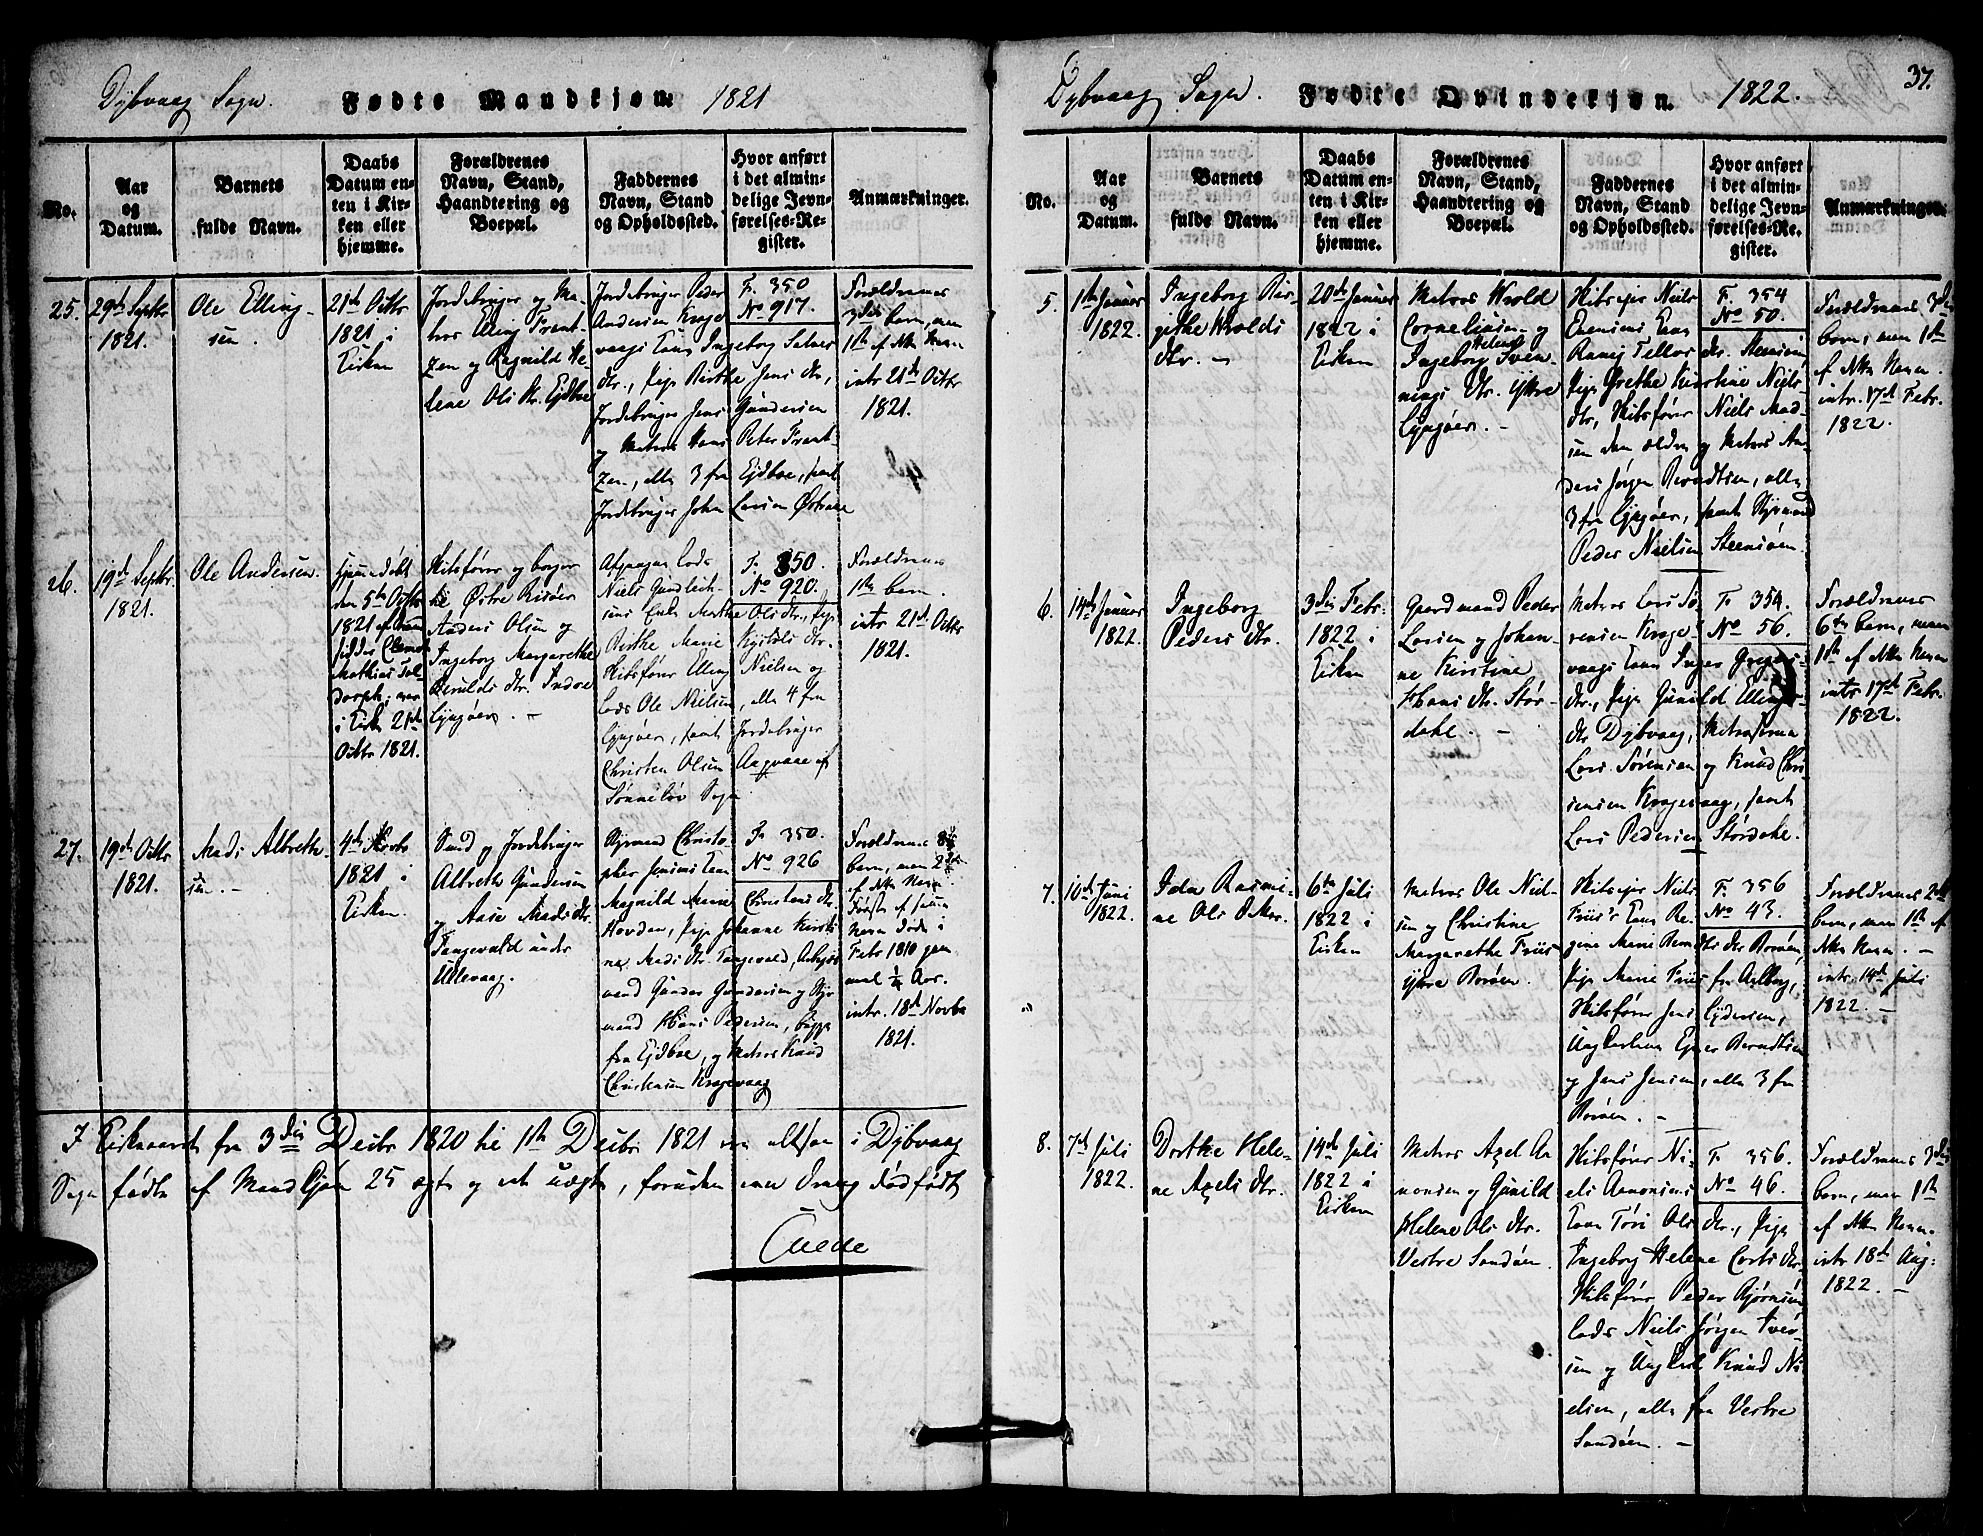 Dybvaag Sogn. Fødte Mandkjøn. 1821
No.
Aar
og
Datum.
Barnets
fulde Navn.
Daabs
Datum en-
ten i Kir-
ken eller
hjemme.
Forældrenes
Navn, Stand,
Haandtering og
Boepæl.
Faddernes
Navn, Stand
og Opholdssted.
Hvor anført
i det almin-
delige Jevn-
førelses-Re-
gister.
Anmærkninger.
25.
29de Septbr
1821.
Ole Elling-
sen.
21de Octbr
1821 i
Kirken
Jordebruger og Ma-
tros Elling Frant-
zen og Ragnild He-
lene Ols Dr. Eidboe
Jordebruger Peder
Andersen Krage-
vaags Kone Ingeborg Salves
dr., Pige Birthe Jens dr,
Jordebruger Jens Gundersen
og Matros Hans Peter Frant-
zen, alle 3 fra Eidboe, samt
Jordebruger John Larsen Østraae
F. 350
No 917.
Forældrenes
3die barn, men
1te af dette Navn
intr 21de Octbr
1821.
26.
19de Septbr.
1821.
Ole Andersen.
hjemmedøbt
den 5te Octbr
1821 af
i Kirke 21de
Octbr 1821.
Skibsfører og borger
til Østre Risøer
Anders Olsen og
Ingeborg Margarethe
Teruldsdr. Indre
Lyngøer. –
Niels Gundersens
Enke Marthe Ols dr., Pige
Birthe Marie Kjetels dr.
Skibsfører Elling Nielsen og
Lods Ole Nielsen, alle 4 fra
Lyngøer, samt Jordebruger
Christen Olsen Aaqvaae af
Sønneløv Sogn
F. 350.
No 920.
Forældrenes
1te barn.
intr 21de Octbr
1821.
27.
19de Octbr
1821.
Mads Albreth-
sen. –
4de Novbr
1821 i
Kirken.
Smed og Jordebruger
Albreth Gundersen
og Aase Mads dr.
Tangevald under
Ullevaag.
Styrmand Christo-
pher Jensens Kone
Magnild Marie Christens dr.
Hovden, Pige Johanne Kirsti-
ne Mads dr. Tangevald, Arbeids-
mand Gunder Gundersen og Styr-
mand Hans Pedersen, begge
fra Eidboe, og Matros Knud
Christensen Kragevaag
F. 350.
No 926
Forældrenes 8de
barn, men 2det
af dette Navn.
Første af samme
Navn døde i
Febr 1810 gam-
mel ¼ Aar.
intr. 18de Novbr
1821.
I Kirkeaaret fra 3die Decbr 1820 til 1te Decbr 1821 er altsaa i Dybvaag
Sogn fødte af Mandkjøn 25 ægte og et uægte, foruden een Dreng dødfødt
Dybvaag Sogn. Fødte Qvindekjøn. 1822. 37.
No.
Aar
og
Datum.
Barnets
fulde Navn.
Daabs
Datum en-
ten i Kir-
ken eller
hjemme.
Forældrenes
Navn, Stand,
Haandtering og
Boepæl.
Faddernes
Navn, Stand
og Opholdssted.
Hvor anført
i det almin-
delige Jevn-
førelses-Re-
gister.
Anmærkninger.
5.
1te Januar
1822.
Ingeborg Bir-
githe Wrolds
dtr. –
20de Januar
1822 i
Kirken
Matros Wrold
Corneliusen og
Ingeborg Helene Sven-
nings Dtr. Ydre
Lyngøer. –
Skibseier Niels
Evensens Kone
Ranvi Tellefs dr. Steensøen,
Pige Grethe Kirstine Niels
dtr, Skibsfører Niels Mad-
sen den ældre og Matros An-
ders Jørgen Berndtsen, alle
3 fra Lyngøer, samt Styrmand
Peder Nielsen Steensøen.
F. 354
No 50.
Forældrenes 3die
barn, men 1te
af dette Navn.
intr. 17de Febr.
1822.
6.
14de Januar
1822.
Ingeborg
Peders dtr.
3die Febr.
1822 i
Kirken
Gaardmand Peder
Larsen og Johan-
ne Kirstine
Hans dtr. Stør-
dahl. –
Matros Lars Sø-
rensen Krage-
vaags Kone Inger Gregers-
dtr., Pige Gunild Ellings-
dtr Dybvaag, Matroserne
Lars Sørensen og Knud Chri-
stensen Kragevaag, samt
Lars Pedersen Størdahl.
F. 354.
No 56.
Forældrenes
6te barn, men
1te af dette Navn
intr 17de Febr.
1822.
7.
10de Juni
1822.
Ida Rasmi-
ne Ols dtr.
6te Juli
1822 i
Kirken
Matros Ole Niel-
sen og Christine
Margarethe Friis
Ydre Borøen.
Skibseier Niels
Friis's Kone Re-
gine Marie Berndts dtr Borøen,
Pige Marie Friis fra Aalborg,
Skibsfører Jens Lydersen,
Ungkarlene Eyer Berndtsen
og Jens Jensen, alle 3 fra
Borøen. –
F. 356
No 43.
Forældrenes 2det
barn, men 1te af
dette Navn. –
intr. 14de Juli
1822. –
8.
7de Juli
1822.
Dorthe Hele-
ne Axels dtr.
14de Juli
1822 i
Kirken
Matros Axel Aa-
nonsen og Gunild
Helene Ols dtr.
Vestre Sandøen.
Skibsfører Ni-
els Aanonsens
Kone Tøri Ols dr., Pige
Ingeborg Helene Corts dr.
Skibsfører Peder Bjørnsen
Lods Niels Jørgen Iver-
sen og Ungkarl Knud Ni-
elsen, alle fra Vestre
Sandøen. –
F. 356.
No 46.
Forældrenes 3die
barn, men 1te
af dette Navn.
intr 18de Aug:
1822. –